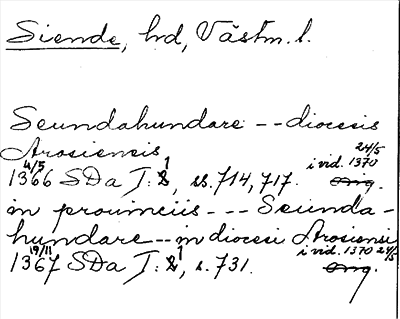 Siende, hd, Västm. l.
Seundahundare -- diocesis
Arosiensis 24/5
4/5 i vid. 1370
1366 SDa I:1, ss. 714, 717. orig.
in prouinciis --- Seunda-
hundare -- in diocesi Arosiensi
19/11 i vid. 1370 24/5
1367 SDa I:1, s. 731. orig.